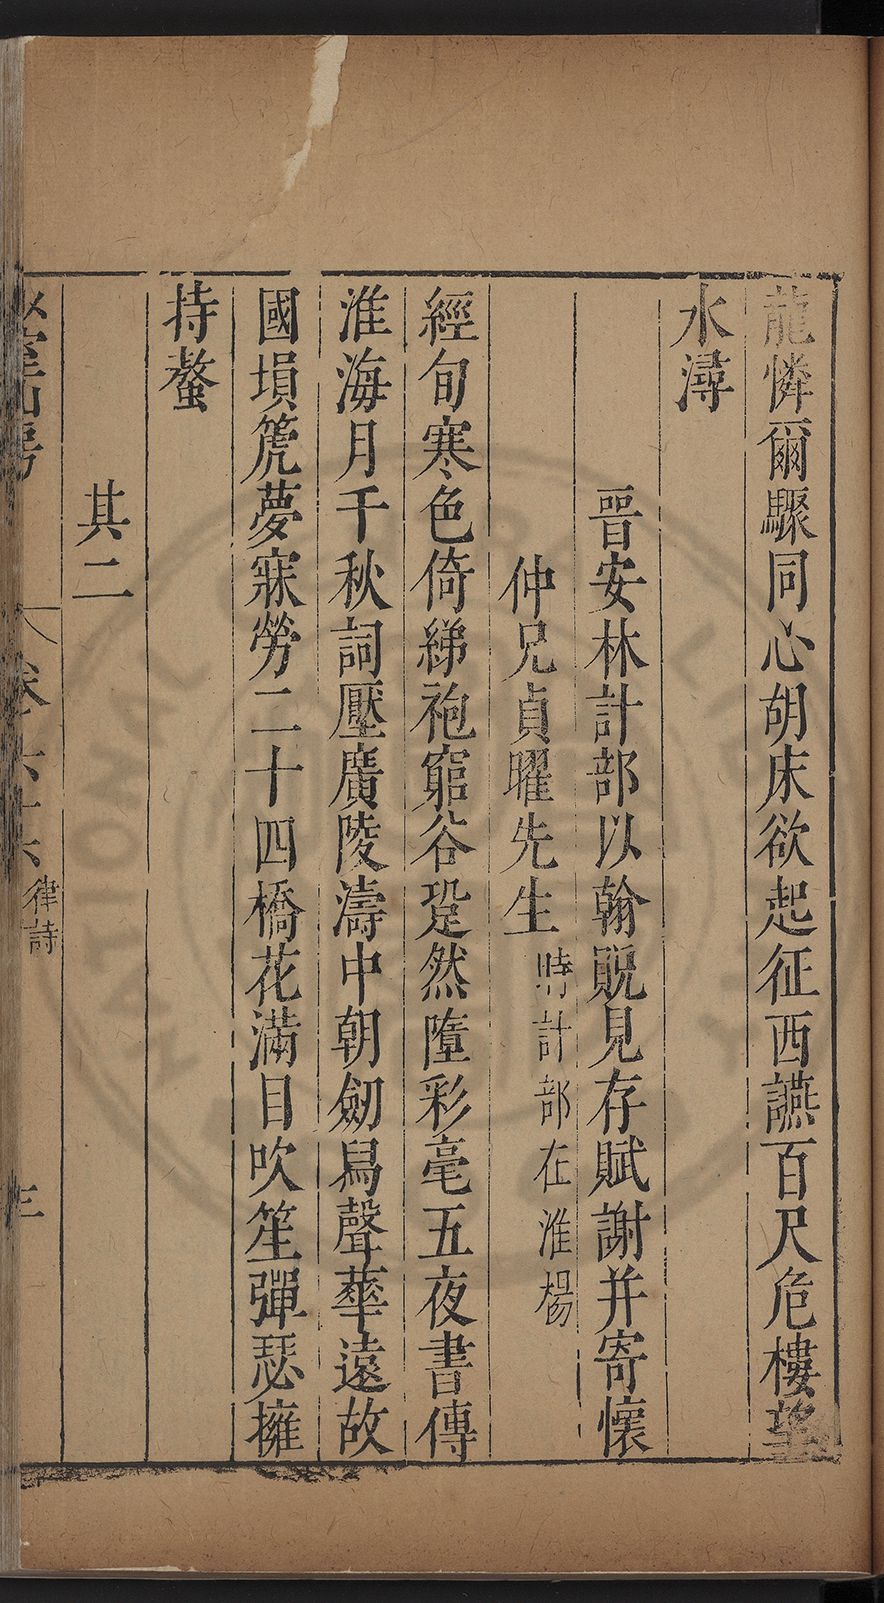 龍憐爾驟同心胡床欲起征西讌百尺危樓望
水潯
晋安林計部以翰貺見存賦謝并寄懷
仲兄貞曜先生時計部在淮楊
經旬寒色倚綈袍窮谷跫然墮彩毫五夜書傳
淮海月千秋詞壓廣陵濤中朝劒舃聲華遠故
國塤箎夢寐勞二十四橋花滿目吹笙彈瑟擁
持螯
其二
室山房
卷六十六
律詩
三